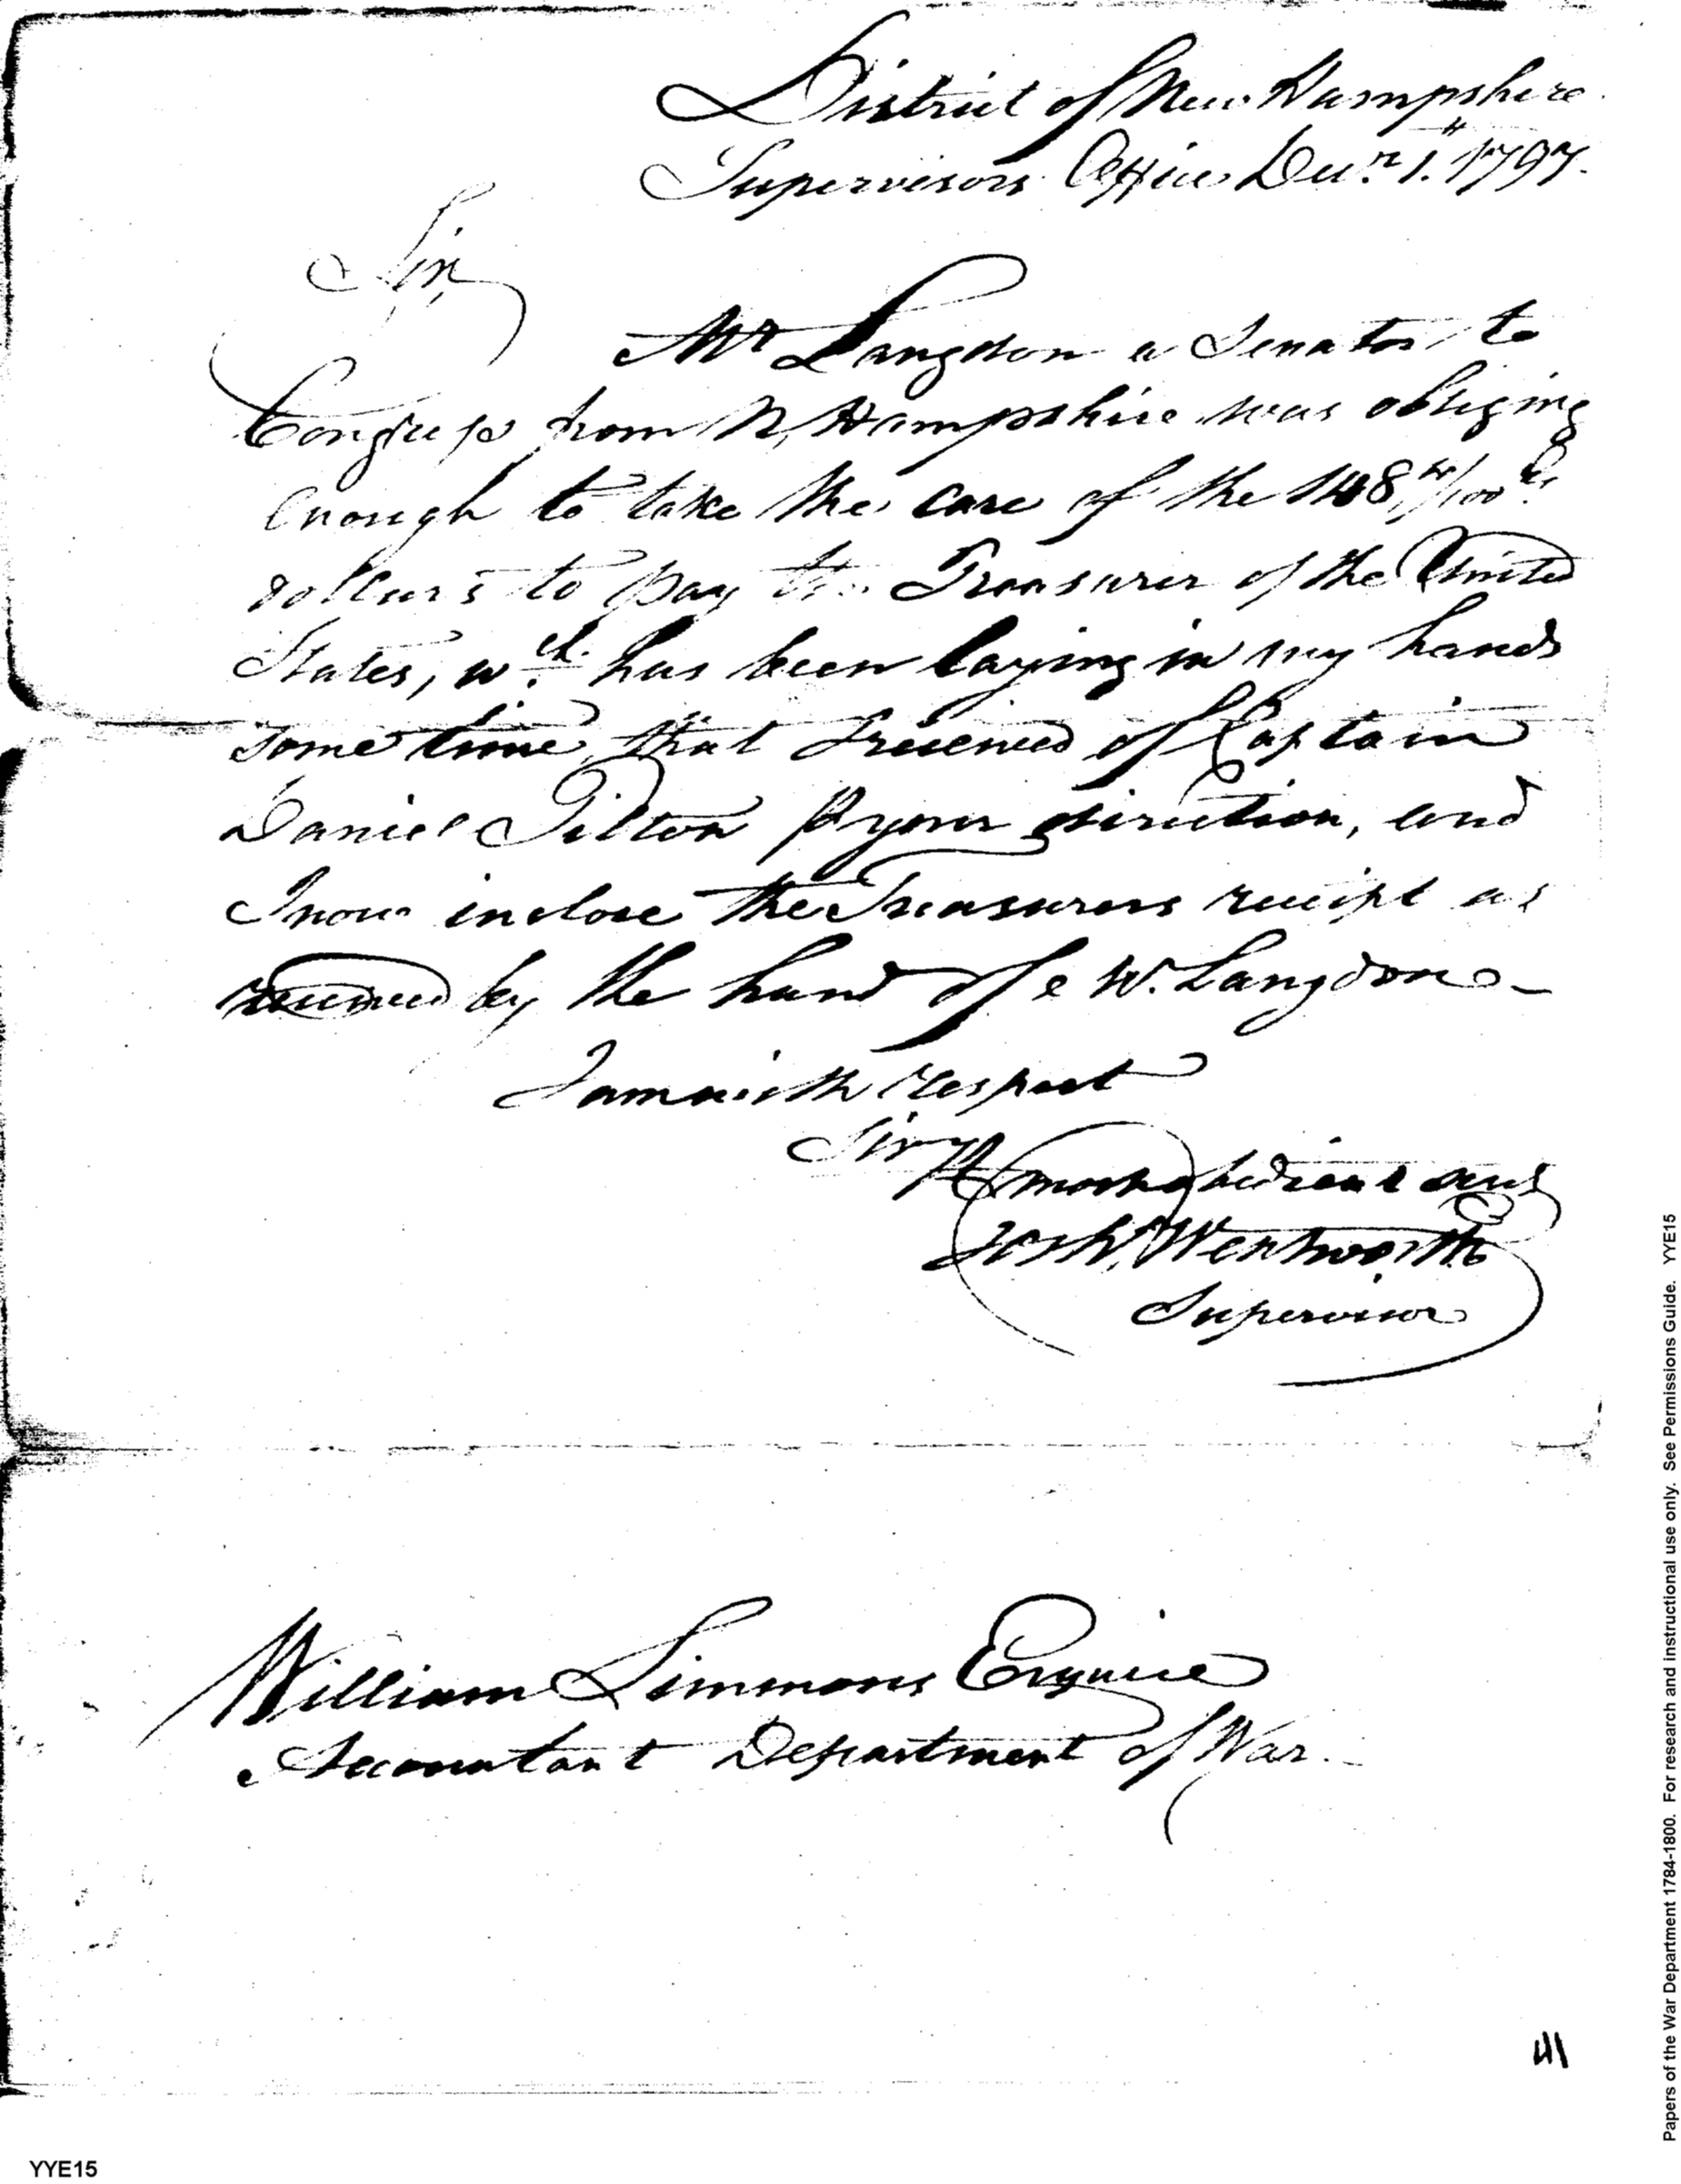 District of New Hampshire
Supervisors Office Decr. 1. 1797.
Sir,
Mr Langdon a Senator to
Congress from N, Hampshire was obliging
enough to take the care of the 148 /100ds
dollars to pay the Treasurer of the United
States, wch. has been laying in my hands
some time, that I received of Captain
Daniel Tilton pr your direction, and
I now inclose the Treasurers receipt as
received by the hand of W. Langdon
I am with respect
Sir
most obedient servt
Josh. Wentworth
Supervisor
William Simmons Esquire
Accountant Department of War.
41
YYE15
Papers of the War Department 1784-1800. For research and instructional use only. See Permissions Guide. YYE15